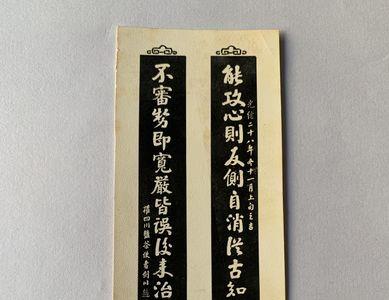 光緒二十八年冬十一月上旬之吉
能攻心則反側自消從古知
不審勢即寬嚴皆誤後來治
權四川鹽茶使者劍川趙